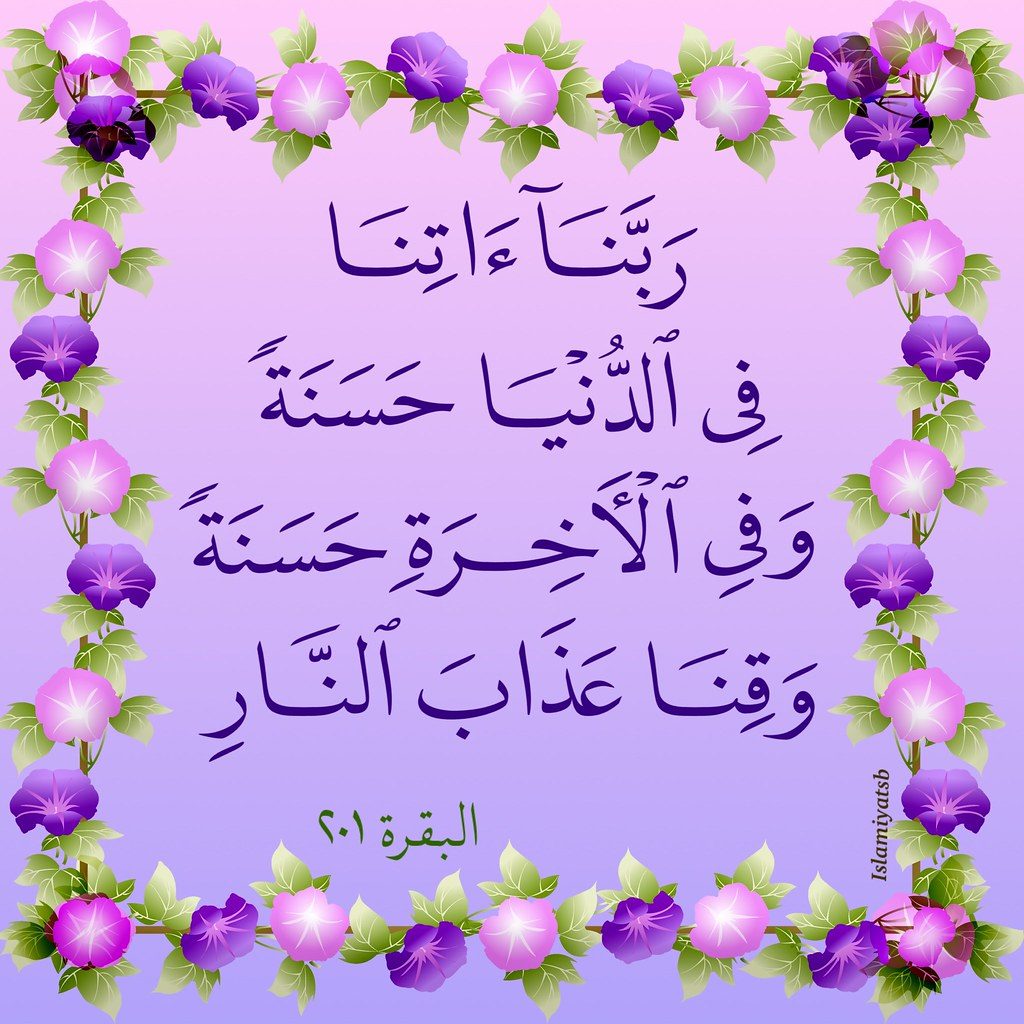 رَبَّنَآ ءَاتِنَا
فِى ٱلدُّنْيَا حَسَنَةً
وَفِى ٱلْأَخِرَةِ حَسَنَةً
وَقِنَا عَذَابَ ٱلنَّارِ
البقرة ٢٠١
Islamiyatsb